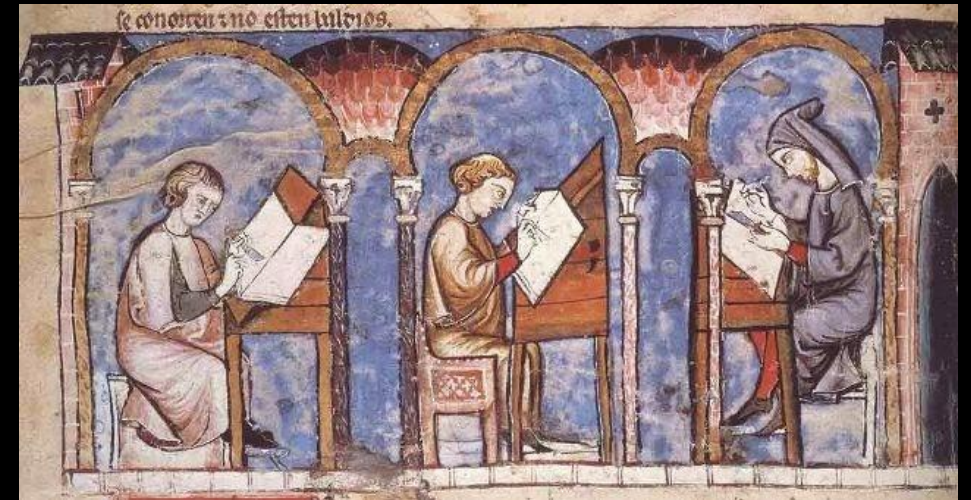 se conoscen ⁊ no esten baldios.